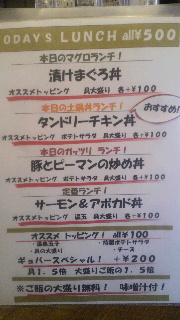 TODAY'S LUNCH all¥500
本日のマグロランチ!
漬けまぐろ丼
オススメトッピング 具大盛り 各+¥100
本日の土鍋丼ランチ!
おすすめ!
タンドリーチキン丼
オススメトッピング ポテトサラダ 具大盛り 各+¥100
本日のガッツリ ランチ!
豚とピーマンの炒め丼
オススメトッピング ポテトサラダ 具大盛り 各+¥100
定番ランチ!
サーモン&アボカド丼
オススメトッピング 温玉 具大盛り 各+¥100
オススメ トッピング! all¥100
・温泉玉子 ・特製ポテトサラダ
・具の大盛り ・チーズ
ギョバースペシャル! +¥200
具1.5倍 大盛りご飯の1.5倍
※ご飯の大盛り無料! 味噌汁付!